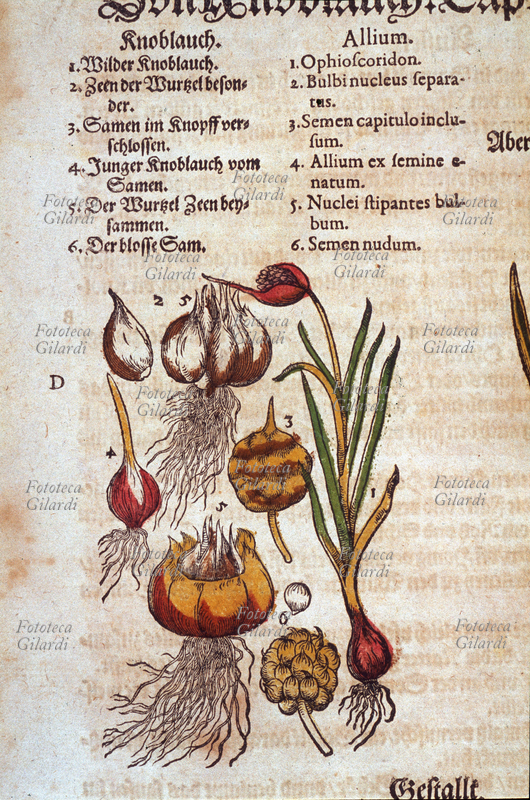 Knoblauch.
1. Wilder Knoblauch.
2. Zeen der Wurtzel beson-
der.
3. Samen im Knopff ver-
schlossen.
4. Junger Knoblauch vom
Samen.
5. Der Wurtzel Zeen bey-
sammen.
6. Der blosse Sam.
Allium.
1. Ophioſcoridon.
2. Bulbi nucleus ſepara-
tus.
3. Semen capitulo inclu-
ſum.
4. Allium ex ſemine e-
natum.
5. Nuclei ſtipantes bul-
bum.
6. Semen nudum.
Aber
D
2
5
4
3
1
5
6
Geſtallt.
Fototeca
Gilardi